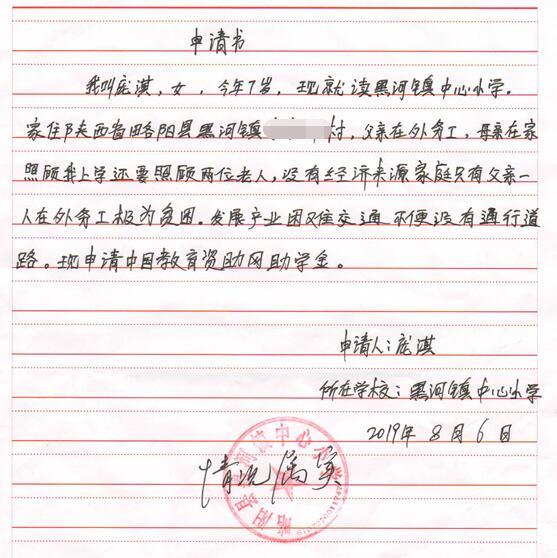 申请书
我叫庞淇，女，今年7岁，现就读黑河镇中心小学。
家住陕西省略阳县黑河镇 村，父亲在外务工，母亲在家
照顾我上学还要照顾两位老人，没有经济来源家庭只有父亲一
人在外务工极为贫困。发展产业困难交通不便没有通行道
路。现申请中国教育资助网助学金。
申请人：庞淇
所在学校：黑河镇中心小学
2019年8月6日
情况属实
略阳县黑河镇中心小学